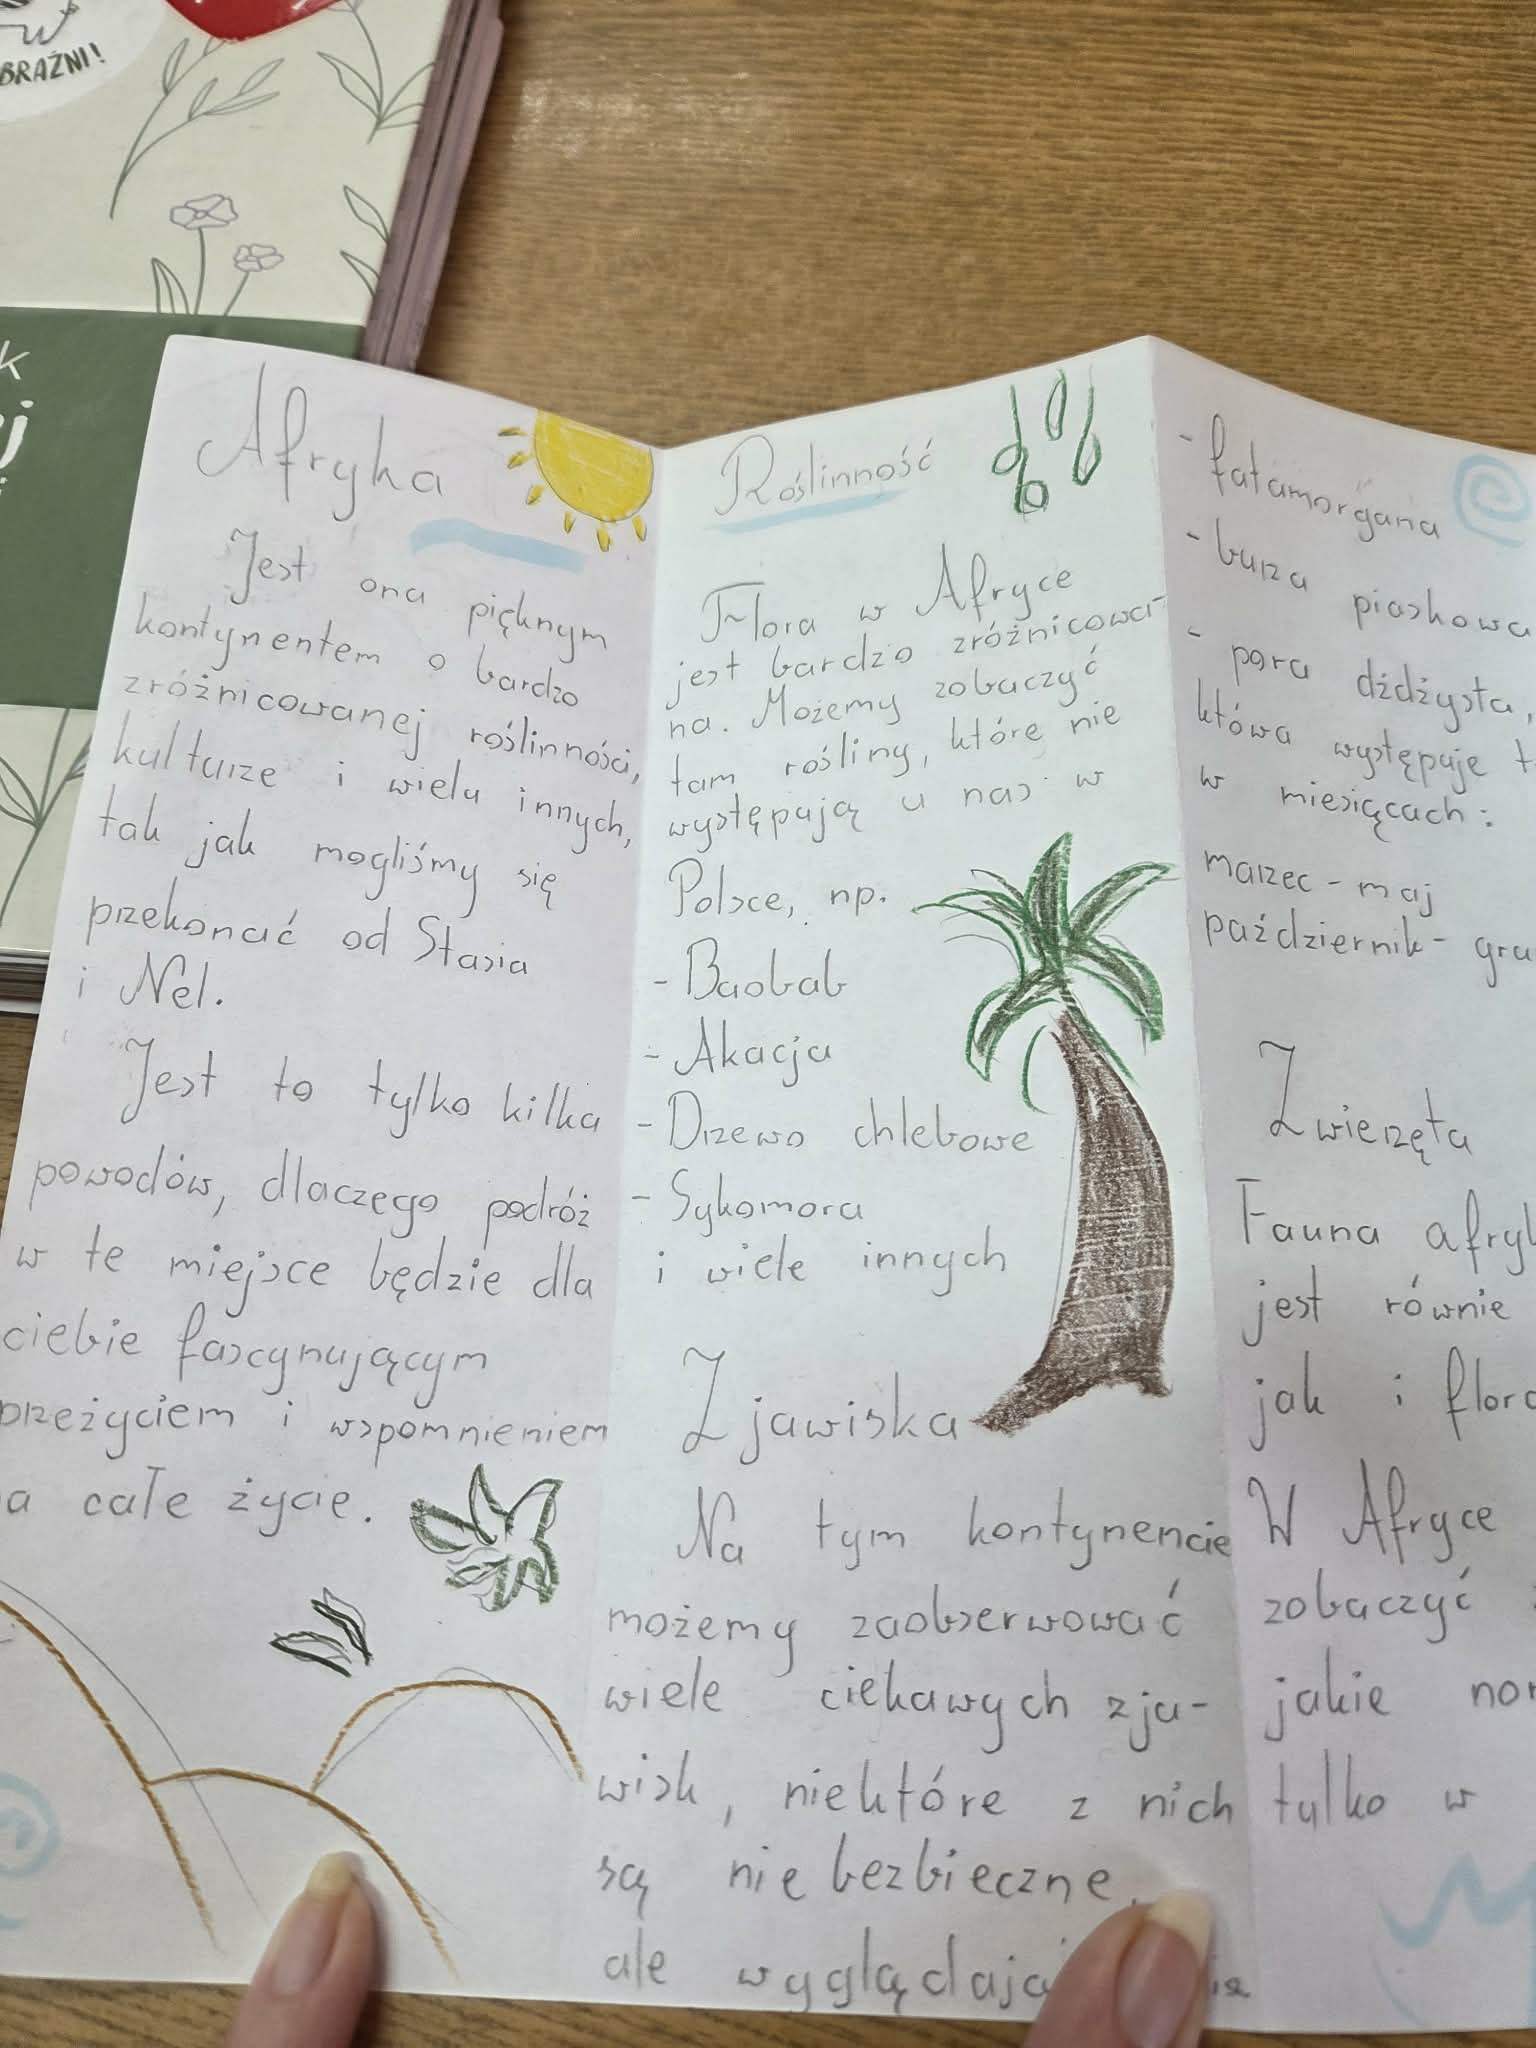 BRAŹNI!
Afryka
Jest ona pięknym
kontynentem o bardzo
zróżnicowanej roślinności,
kulturze i wielu innych,
tak jak mogliśmy się
przekonać od Stasia
i Nel.
Jest to tylko kilka
powodów, dlaczego podróż
w te miejsce będzie dla
ciebie fascynującym
przeżyciem i wspomnieniem
a całe życie.
Roślinność
Flora w Afryce
jest bardzo zróżnicowa-
na. Możemy zobaczyć
tam rośliny, które nie
występują u nas w
Polsce, np.
- Baobab
- Akacja
- Drzewo chlebowe
- Sykomora
i wiele innych
Zjawiska
Na tym kontynencie
możemy zaobserwować
wiele ciekawych zja-
wisk, niektóre z nich
są niebezbieczne,
ale wyglądają
- fatamorgana
- burza piaskowa
- pora dżdżysta,
któwa występuje
w miesiącach:
marzec - maj
październik - gru
Zwierzęta
Fauna afryk
jest równie
jak i flora
W Afryce
zobaczyć
jakie nor
tylko w